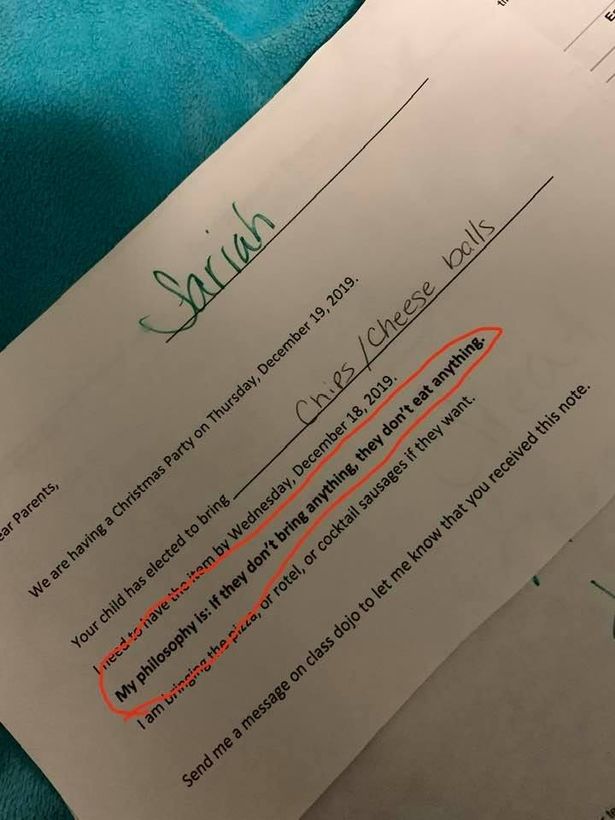 Sariah
ear Parents,
We are having a Christmas Party on Thursday, December 19, 2019.
Your child has elected to bring Chips/Cheese balls
I need to have the item by Wednesday, December 18, 2019.
My philosophy is: if they don't bring anything, they don't eat anything.
I am bringing the pizza, or rotel, or cocktail sausages if they want.
Send me a message on class dojo to let me know that you received this note.